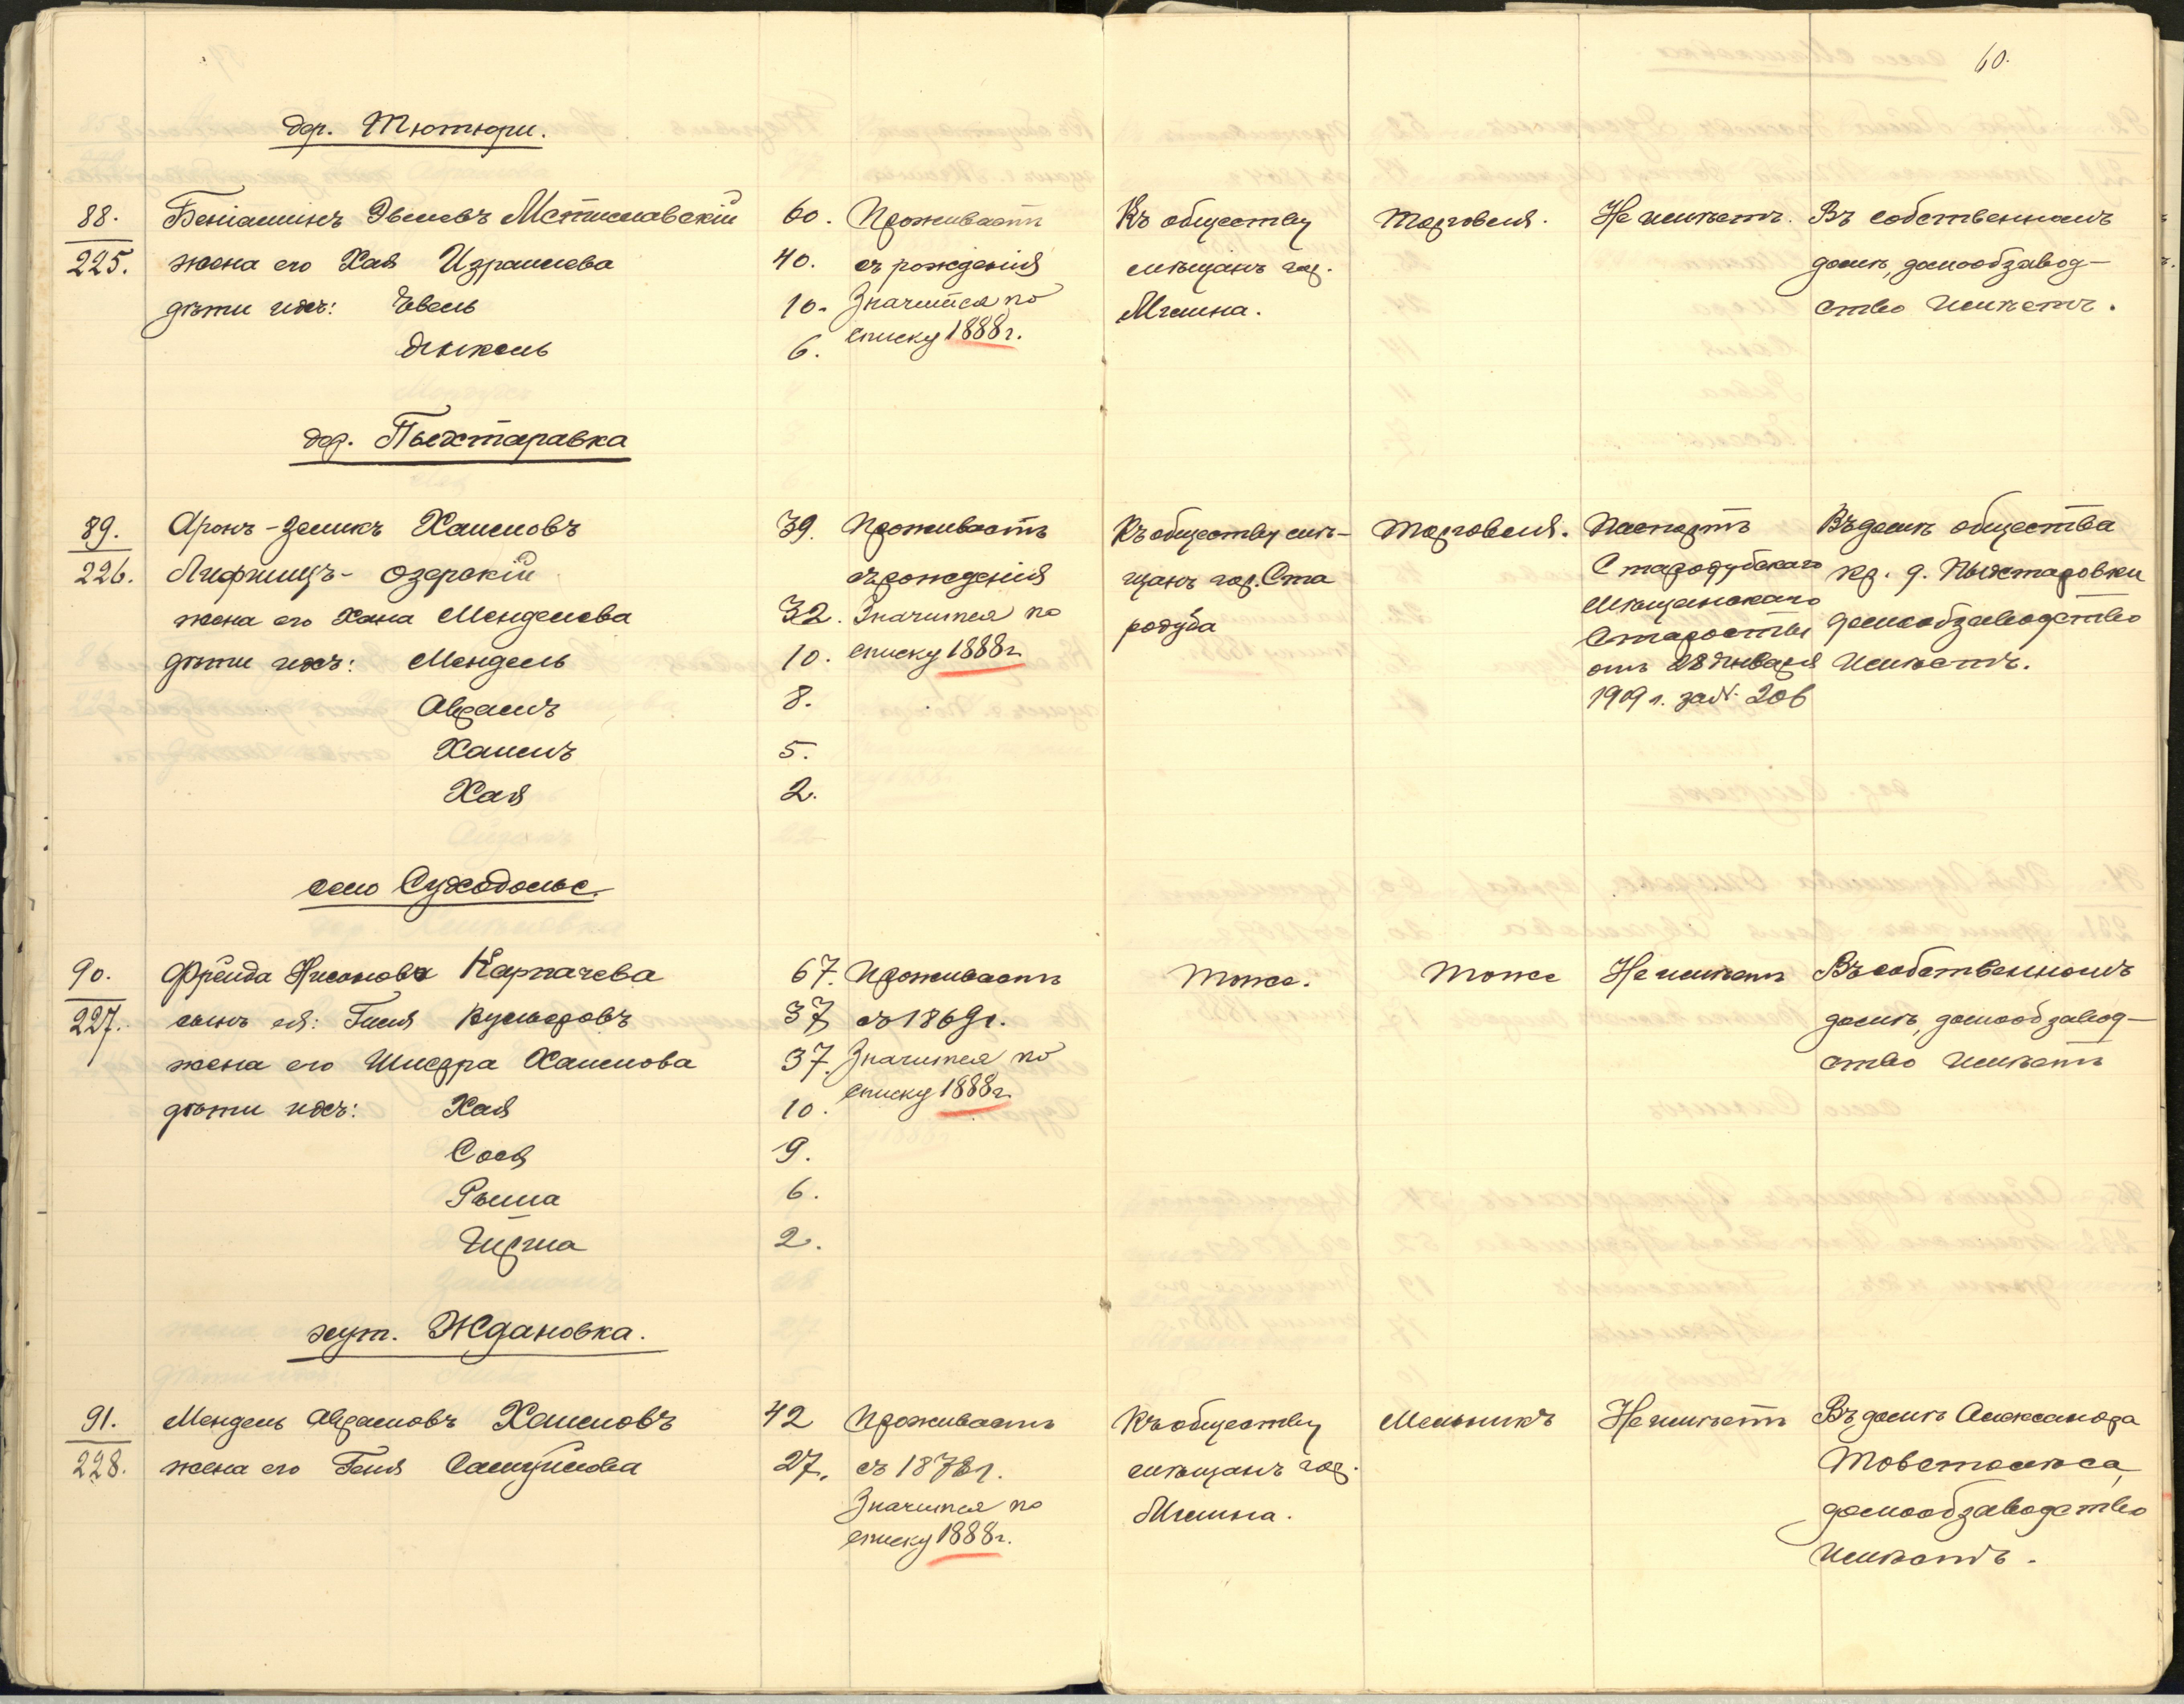 60.
дер. Тютюри.
88.
225.
Беніаминъ Эвелевъ Мстиславскій
жена его Хая Израилева
дѣти ихъ: Евель
60.
40.
10.
6.
Проживаетъ
съ рожденія
Значится по
списку 1888 г.
Къ обществу
мѣщанъ гор.
Мглина.
Торговля.
Не имѣетъ.
Въ собственномъ
домѣ, домообзавод-
ство имѣетъ.
дер. Пыхтаравка
89.
226.
Аронъ-Зеликъ Хаимовъ
Лифшицъ-Озерскій
жена его Хана Менделева
дѣти ихъ: Мендель
Абрамъ
Хаимъ
Хая
39.
32.
10.
8.
5.
2.
Проживаетъ
съ рожденія
Значится по
списку 1888 г.
Къ обществу мѣ-
щанъ гор. Ста
родуба
Торговля.
Паспортъ
Стародубскаго
мѣщанскаго
Старосты
отъ 28 Января
1909 г. за № 206
Въ домѣ общества
кр. д. Пыхтаровки
домообзаводство
имѣетъ.
село Суходолье.
90.
227.
Фрейда Нисонова Карпачева
сынъ ея: Гиля Кушеровъ
жена его Шифра Хаимова
дѣти ихъ: Хая
Сося
Рыша
67.
37
37.
10.
9.
6.
2.
Проживаетъ
съ 1869 г.
Значится по
списку 1888 г.
Тоже.
Тоже
Не имѣетъ
Въ собственномъ
домѣ, домообзавод-
ство имѣетъ
хут. Ждановка.
91.
228.
Мендель Абрамовъ Хаимовъ
жена его Геня Самуйлова
42
27.
Проживаетъ
съ 1878 г.
Значится по
списку 1888 г.
Къ обществу
мѣщанъ гор.
Мглина.
Мельникъ
Не имѣетъ
Въ домѣ Александра
Товстолѣса,
домообзаводство
имѣетъ.